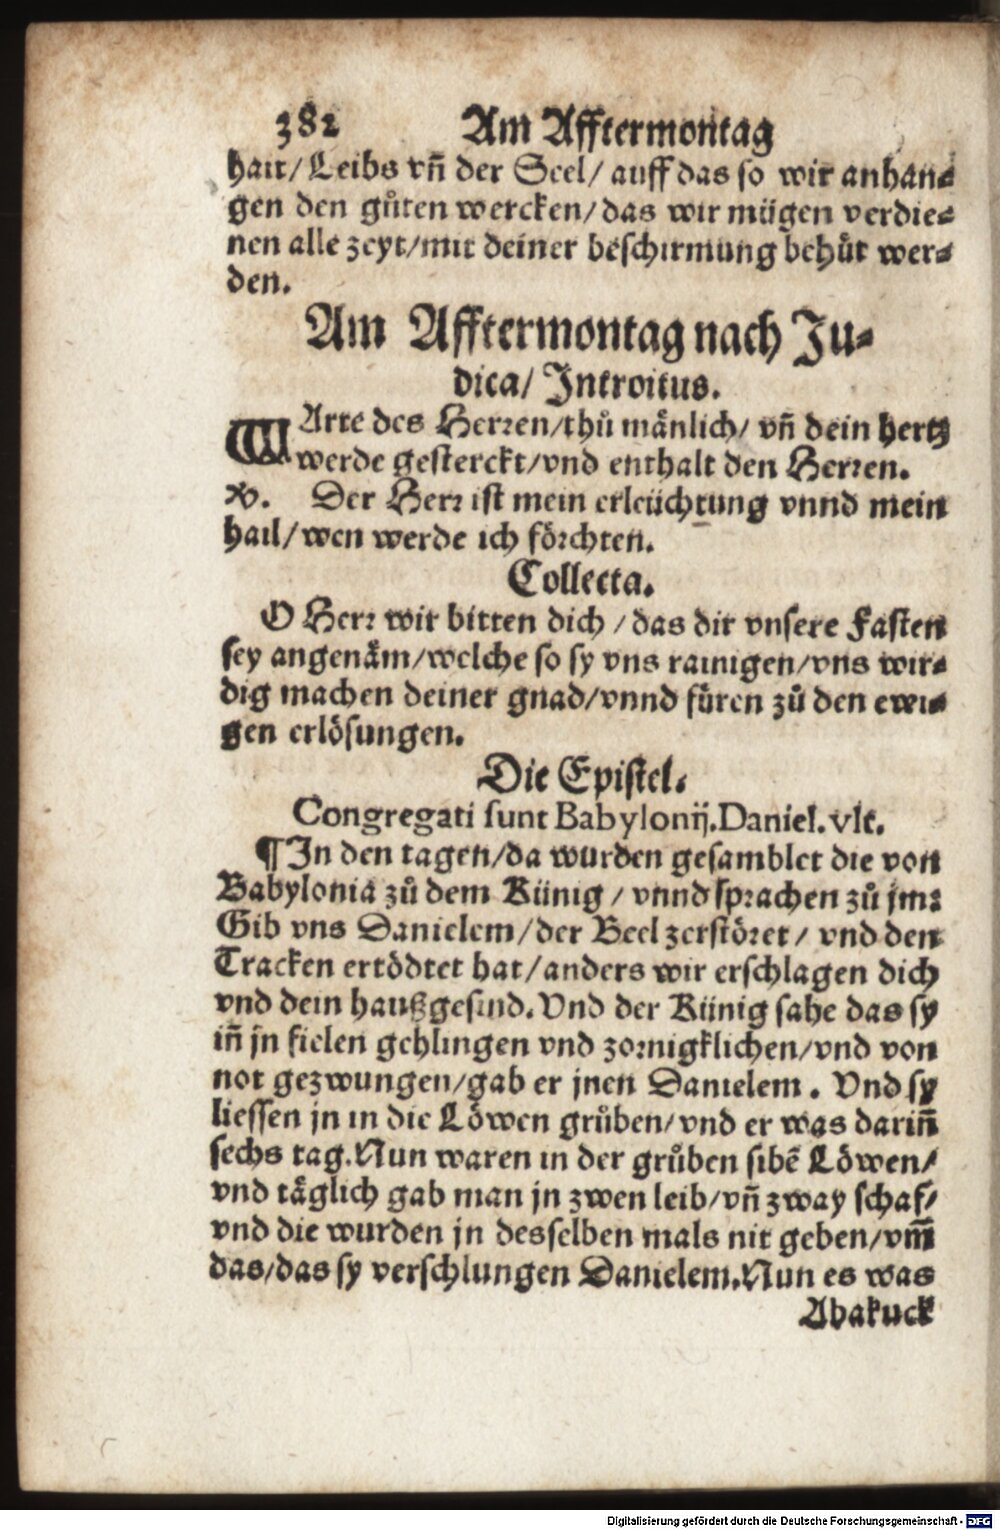 382 Am Afftermontag
hait/ Leibs vñ der Seel/ auff das so wir anhan⸗
gen den gůten wercken/ das wir mügen verdie⸗
nen alle zeyt/mit deiner beschirmung behůt wer⸗
den.
Am Afftermontag nach Ju⸗
dica/ Introitus.
WArte des Herren/thů mänlich/ vñ dein hertz
werde gesterckt/vnd enthalt den Herren.
V. Der Herr ist mein erleüchtung vnnd mein
hail/wen werde ich förchten.
Collecta.
O Herr wir bitten dich / das dir vnsere Fasten
sey angenäm/welche so sy vns rainigen/vns wir⸗
dig machen deiner gnad/vnnd füren zů den ewi⸗
gen erlösungen.
Die Epistel.
Congregati sunt Babylonij. Daniel. vlt.
¶ In den tagen/da wurden gesamblet die von
Babylonia zů dem Künig / vnnd sprachen zů jm:
Gib vns Danielem/der Beel zerstöret/ vnd den
Tracken ertödtet hat/anders wir erschlagen dich
vnd dein haußgesind. Vnd der Künig sahe das sy
iñ jn fielen gehlingen vnd zornigklichen/vnd von
not gezwungen/gab er jnen Danielem. Vnd sy
liessen jn in die Löwen grůben/vnd er was dariñ
sechs tag. Nun waren in der grůben sibē Löwen/
vnd täglich gab man jn zwen leib/vñ zway schaf/
vnd die wurden jn desselben mals nit geben/vm̄
das/das sy verschlungen Danielem. Nun es was
Abakuck
Digitalisierung gefördert durch die Deutsche Forschungsgemeinschaft - DFG